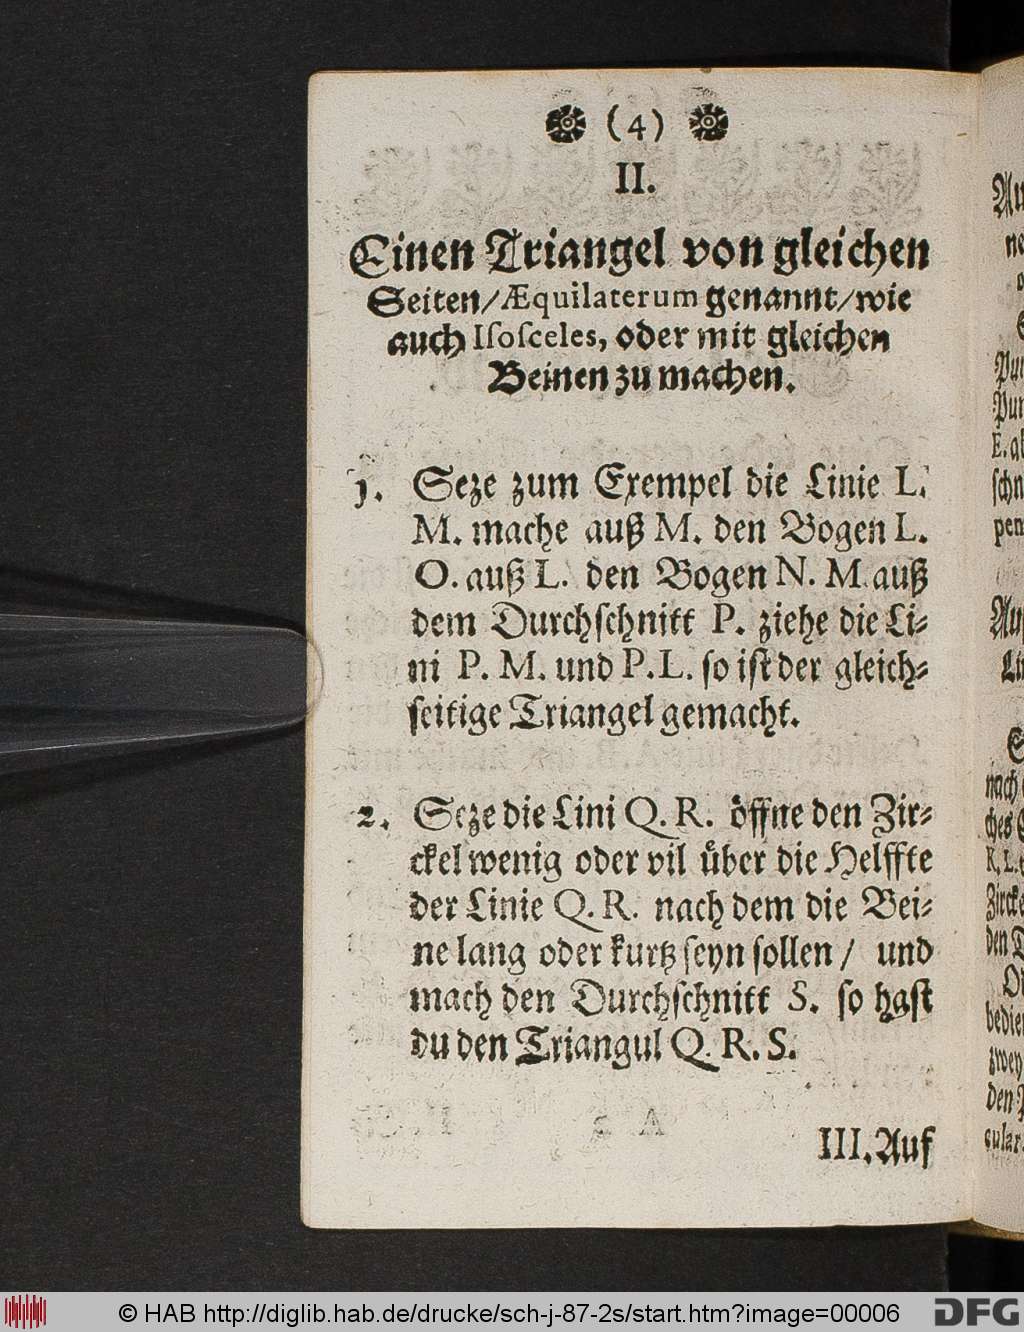 (4)
II.
Einen Triangel von gleichen
Seiten/Æquilaterum genannt/wie
auch Iſoſceles, oder mit gleichen
Beinen zu machen.
1. Seze zum Exempel die Linie L.
M. mache auß M. den Bogen L.
O. auß L. den Bogen N. M. auß
dem Durchſchnitt P. ziehe die Li⸗
ni P. M. und P. L. ſo iſt der gleich⸗
ſeitige Triangel gemacht.
2. Seze die Lini Q. R. öffne den Zir⸗
ckel wenig oder vil über die Helffte
der Linie Q. R. nach dem die Bei⸗
ne lang oder kurtz ſeyn ſollen / und
mach den Durchſchnitt S. ſo haſt
du den Triangul Q. R. S.
III. Auf
© HAB http://diglib.hab.de/drucke/sch-j-87-2s/start.htm?image=00006
DFG